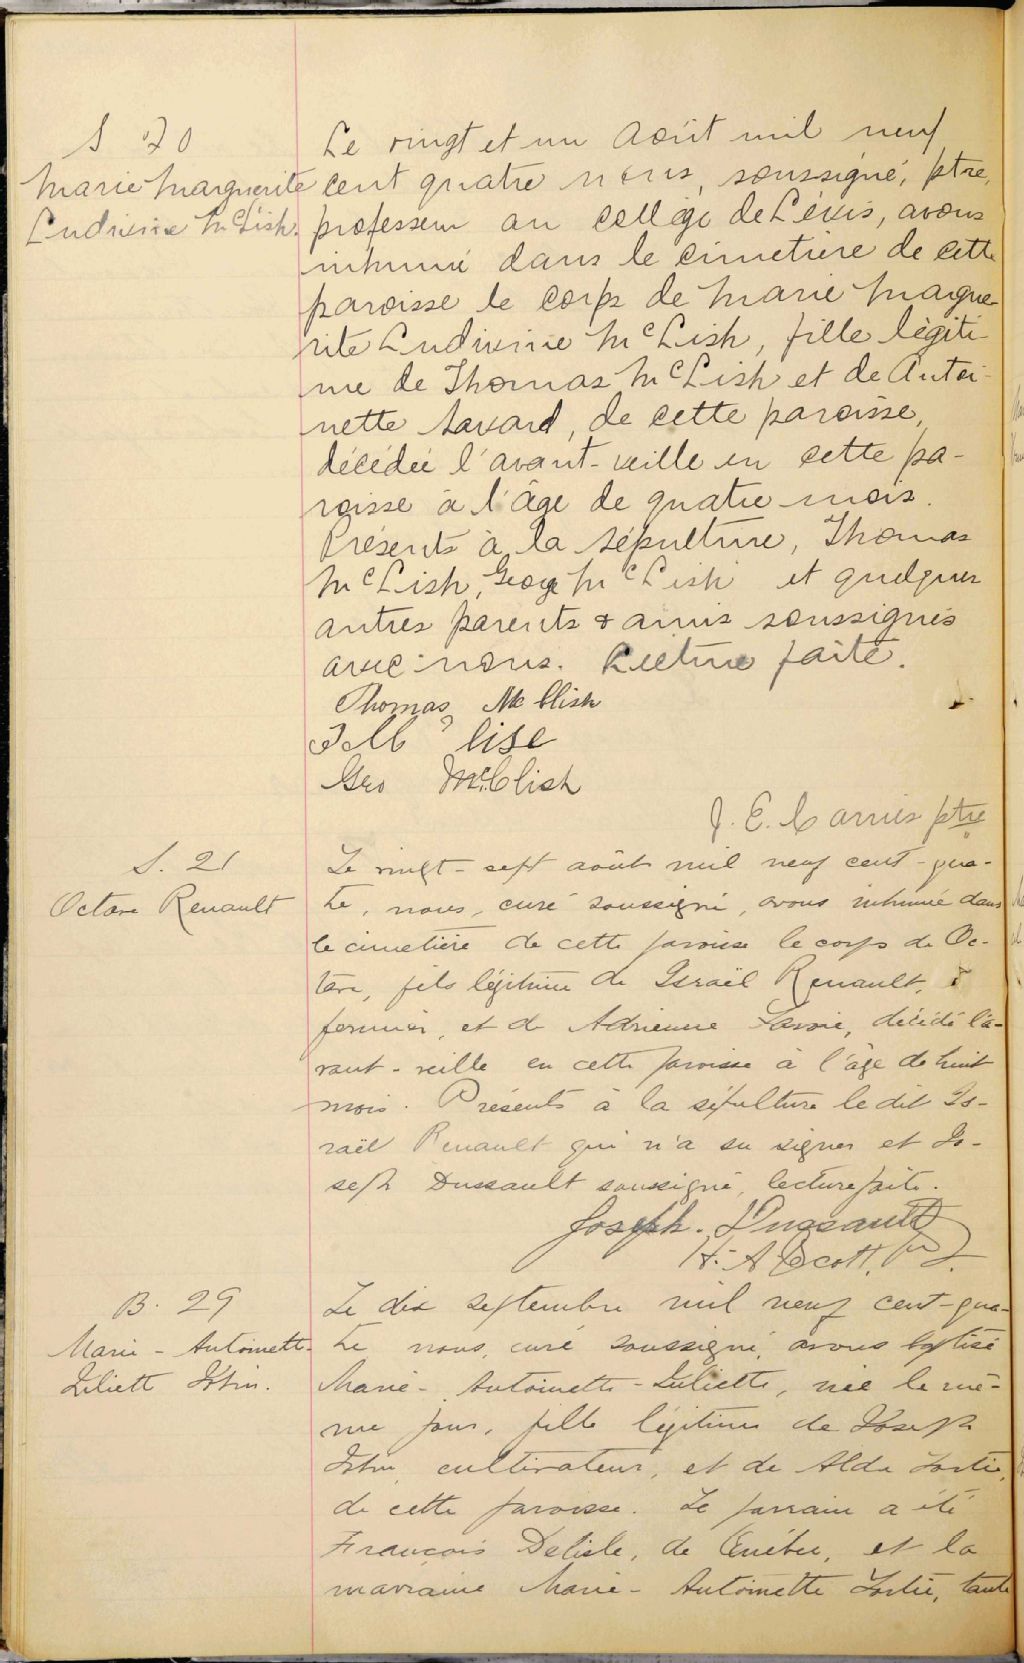 S 20
Marie Marguerite
Ludivine McLish.
Le vingt et un Août mil neuf
cent quatre nous, soussigné, ptre,
professeur au collège de Lévis, avons
inhumé dans le cimetière de cette
paroisse le corps de Marie Margue-
rite Ludivine McLish, fille légiti-
me de Thomas McLish et de Antoi-
nette Savard, de cette paroisse,
décédée l'avant-veille en cette pa-
roisse à l'âge de quatre mois.
Présents à la sépulture, Thomas
McLish, George McLish et quelques
autres parents & amis soussignés
avec nous. Lecture faite.
Thomas Mc Clish
Geo McClish
J. E. Carrier ptre
S. 21
Octave Renault
Le vingt-sept août mil neuf cent-qua-
tre, nous, curé soussigné, avons inhumé dans
le cimetière de cette paroisse le corps de Oc-
tave, fils légitime de Israël Renault,
fermier, et de Adrienne Savoie, décédé l'a-
vant-veille en cette paroisse à l'âge de huit
mois. Présents à la sépulture le dit Is-
raël Renault qui n'a su signer et Jo-
seph Dussault soussigné, lecture faite.
Joseph. Dussault
H. A. Scott, ptre
B. 29
Marie-Antoinette-
Juliette
Le dix septembre mil neuf cent-qua-
tre nous, curé soussigné, avons baptisé
Marie-Antoinette-Juliette, née le mê-
me jour, fille légitime de Joseph
cultivateur, et de Alda Fortié,
de cette paroisse. Le parrain a été
François Delisle, de Québec, et la
marraine Marie-Antoinette Fortié, tante